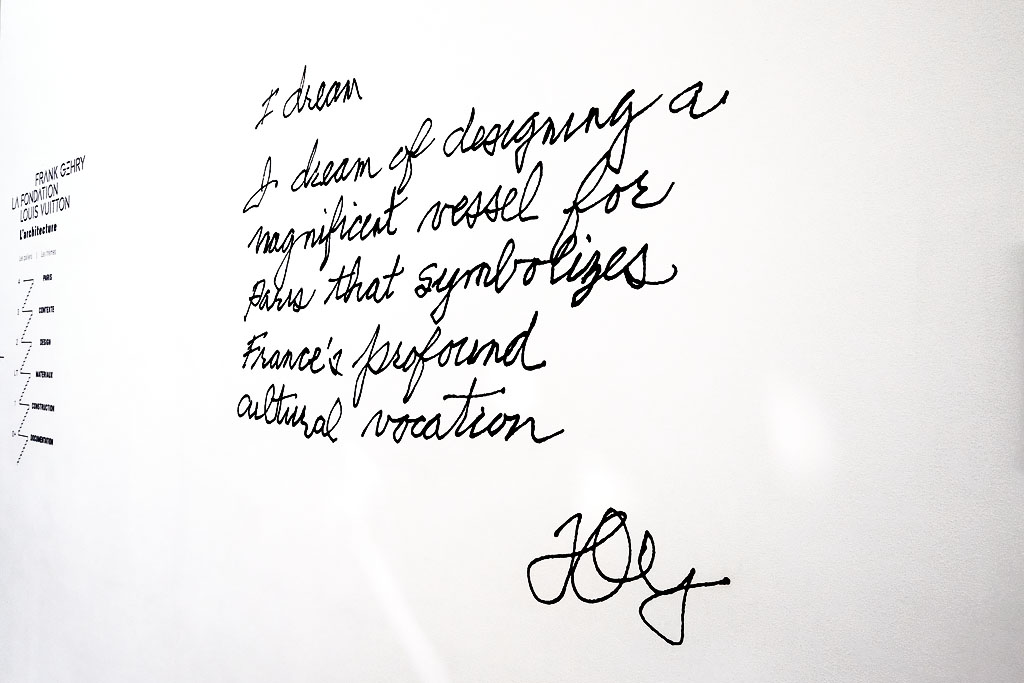 I dream
I dream of designing a
magnificent vessel for
Paris that symbolizes
France's profound
cultural vocation
FRANK GEHRY
LA FONDATION
LOUIS VUITTON
L'architecture
PARIS
CONTEXTE
DESIGN
MATERIAUX
CONSTRUCTION
DOCUMENTATION